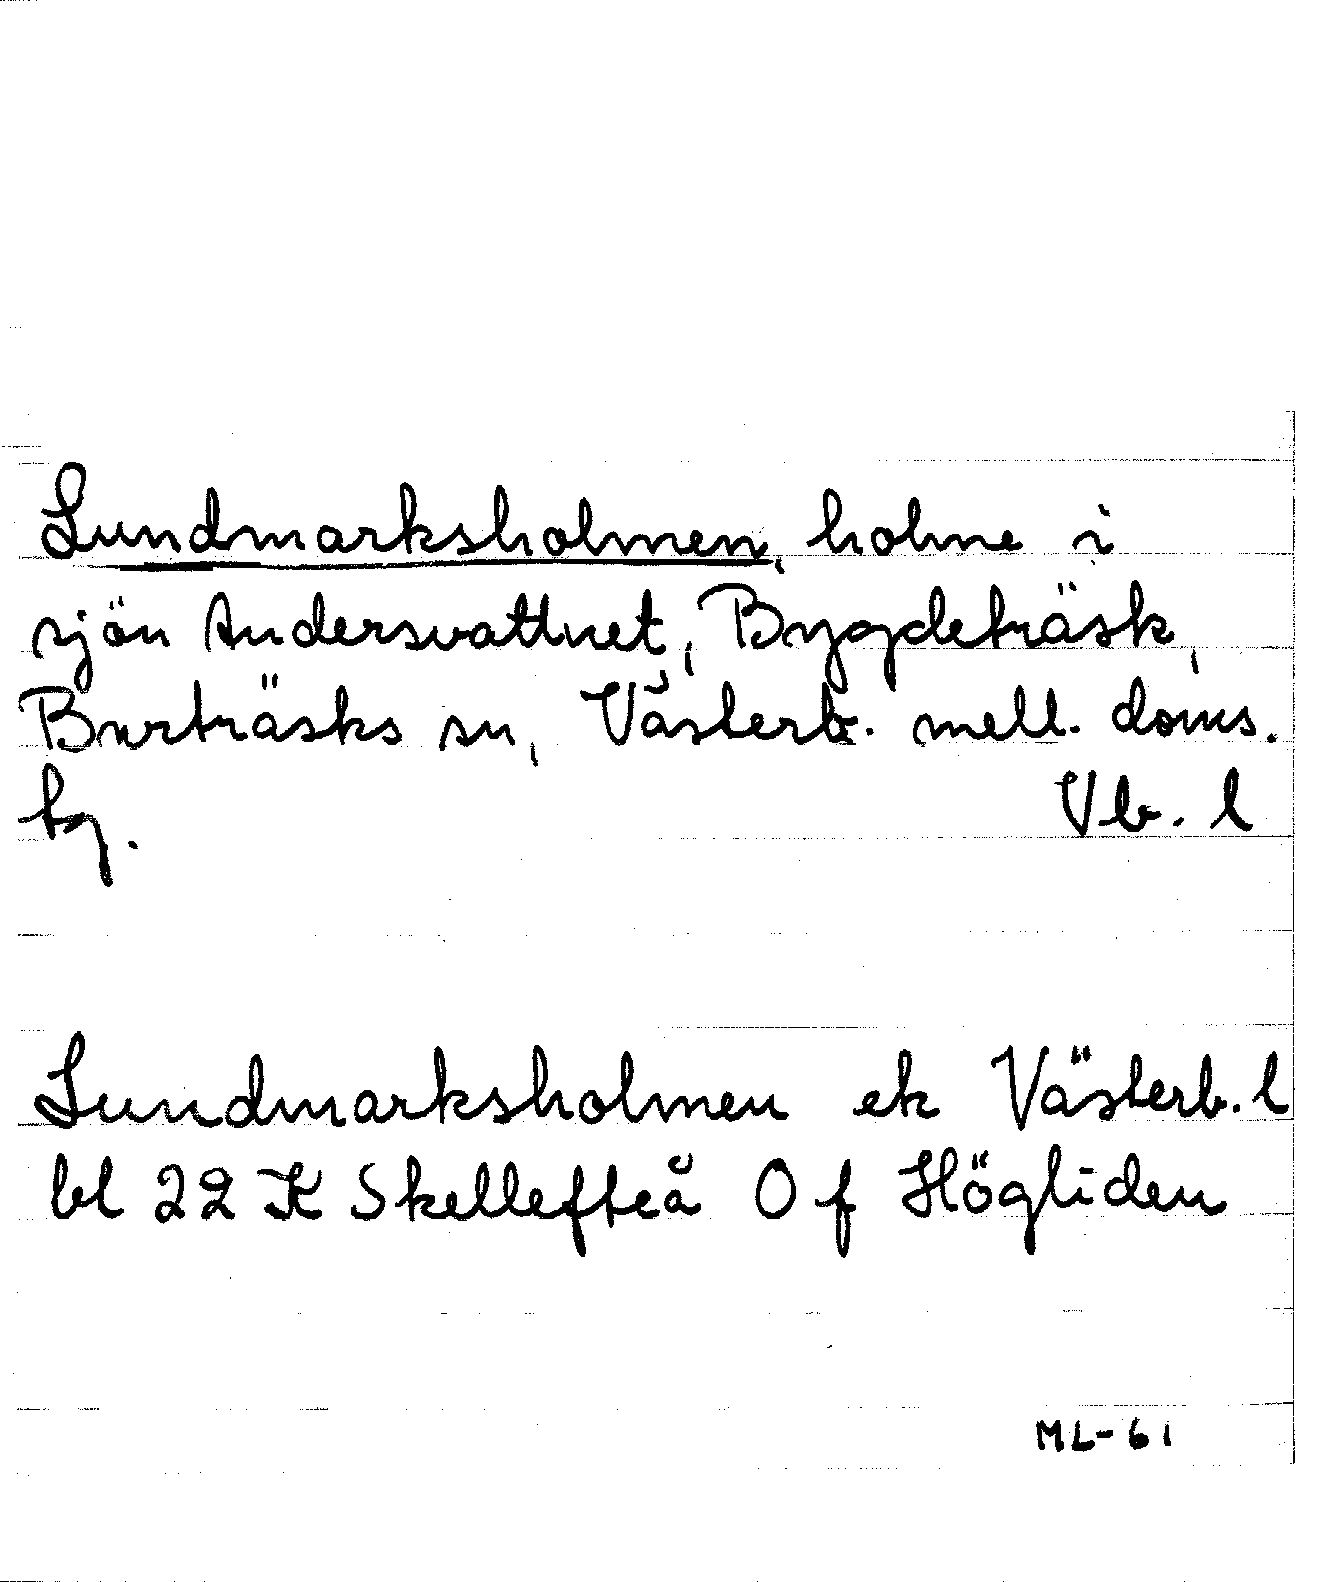 Lundmarksholmen, holme i
sjön Andersvattnet, Bygdeträsk,
Burträsks sn, Västerb. mell. doms.
tg. Vb. l
Lundmarksholmen ek Västerb. l
bl 22 K Skellefteå O f Högliden
ML-61